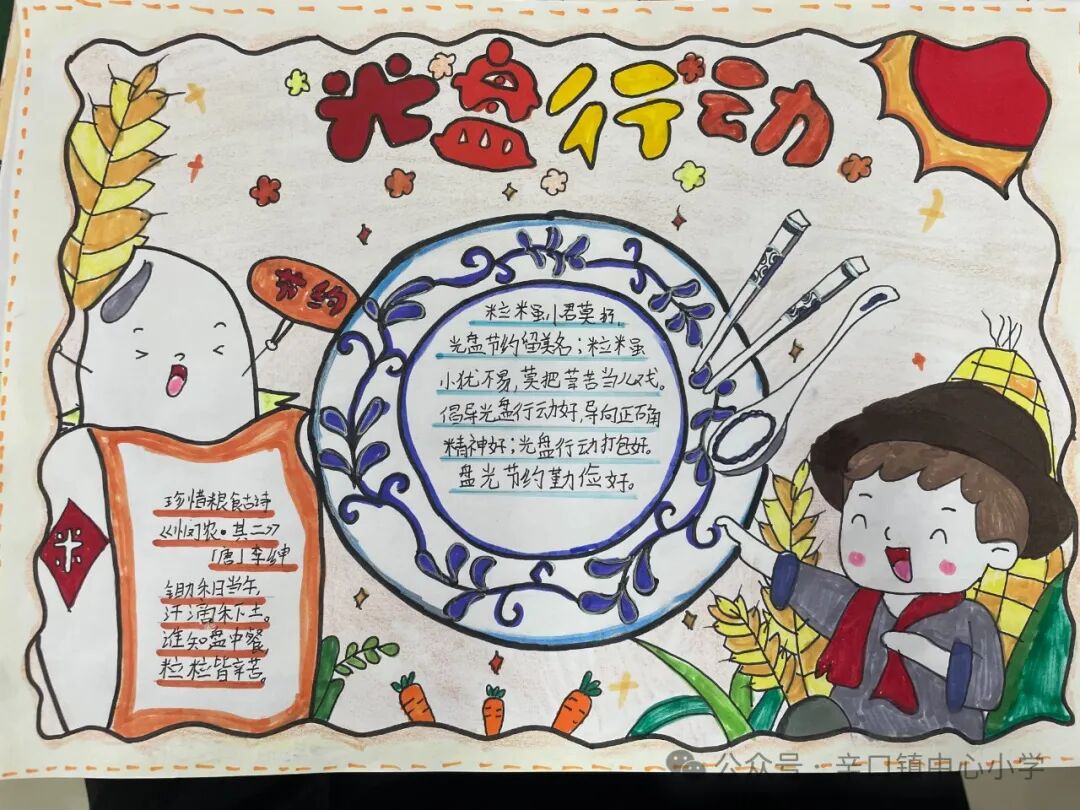 光盘行动
节约
粒米虽小君莫扔,
光盘节约留美名;粒米虽
小犹不易,莫把辛苦当儿戏。
倡导光盘行动好,导向正确
精神好;光盘行动打包好。
盘光节约勤俭好。
珍惜粮食古诗
《悯农·其二》
「唐」李绅
锄禾日当午,
汗滴禾下土。
谁知盘中餐,
粒粒皆辛苦。
米
公众号·辛口镇中心小学